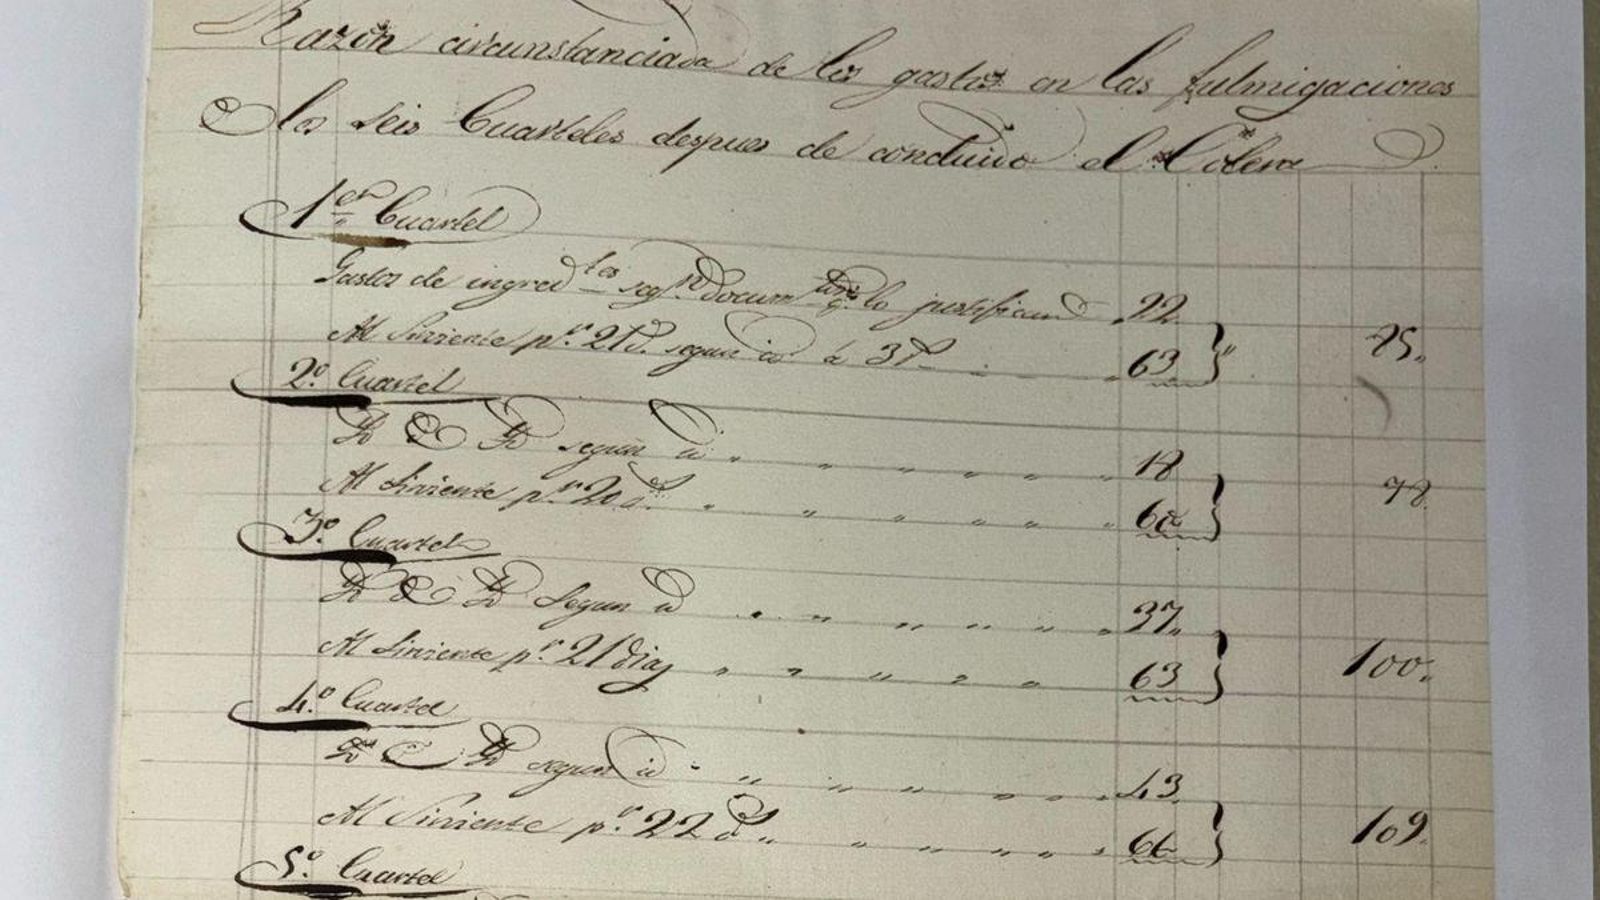 Razón circunstanciada de los gastos en las fulmigaciones
de los seis Cuarteles despues de concluido el Colera
1er Cuartel
Gastos de ingredtes segn documtos q.e lo justifican 22.
Al Sirviente pr. 21 d. segun id a 3 r. 63 } " 85.
2º Cuartel
Yd Yd segun id 18
Al Sirviente pr. 20 ds. 60 } 78.
3º Cuartel
Yd Yd Segun id 37.
Al Sirviente pr. 21 dias 63 } 100.
4º Cuartel
Yd Yd segun id 43
Al Sirviente pr. 22 ds. 66 } 109.
5º Cuartel